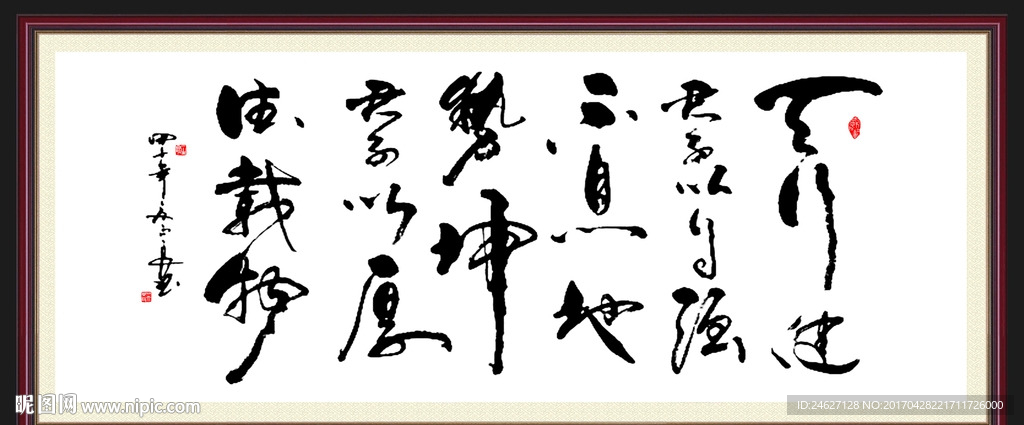 天行健
君子以自强
不息地
勢坤
君子以厚
德載物
昵图网 www.nipic.com
ID:24627128 NO:20170428221711726000